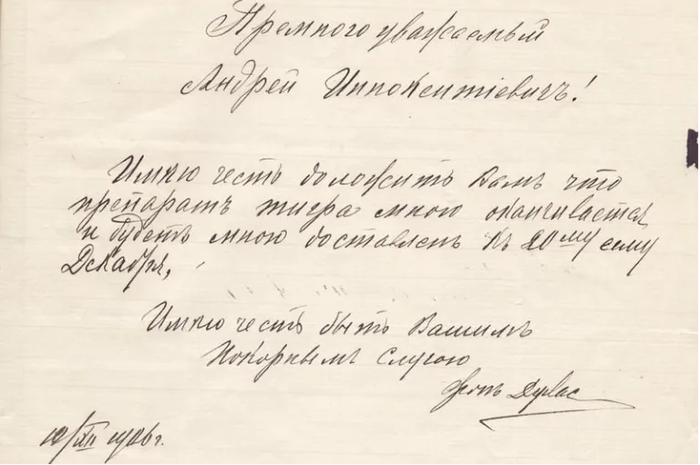 Премного уважаемый
Андрей Иннокентіевичъ!
Имѣю честь доложить Вамъ что
препаратъ тигра мною оканчивается
и будетъ мною доставленъ къ 20му сему
Декабря,
Имѣю честь быть Вашимъ
Покорнымъ Слугою
фонъ
10/XII 1906 г.